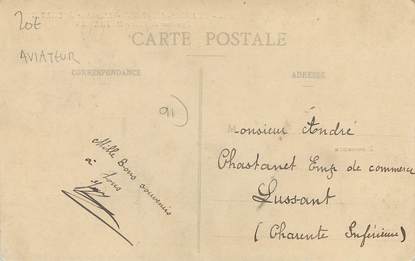 20€
AVIATEUR
CARTE POSTALE
CORRESPONDANCE
ADRESSE
91
Mille Bons souvenirs
à tous
Monsieur André
Chastanet Emp. de commerce
Lussant
(Charente Inférieure)